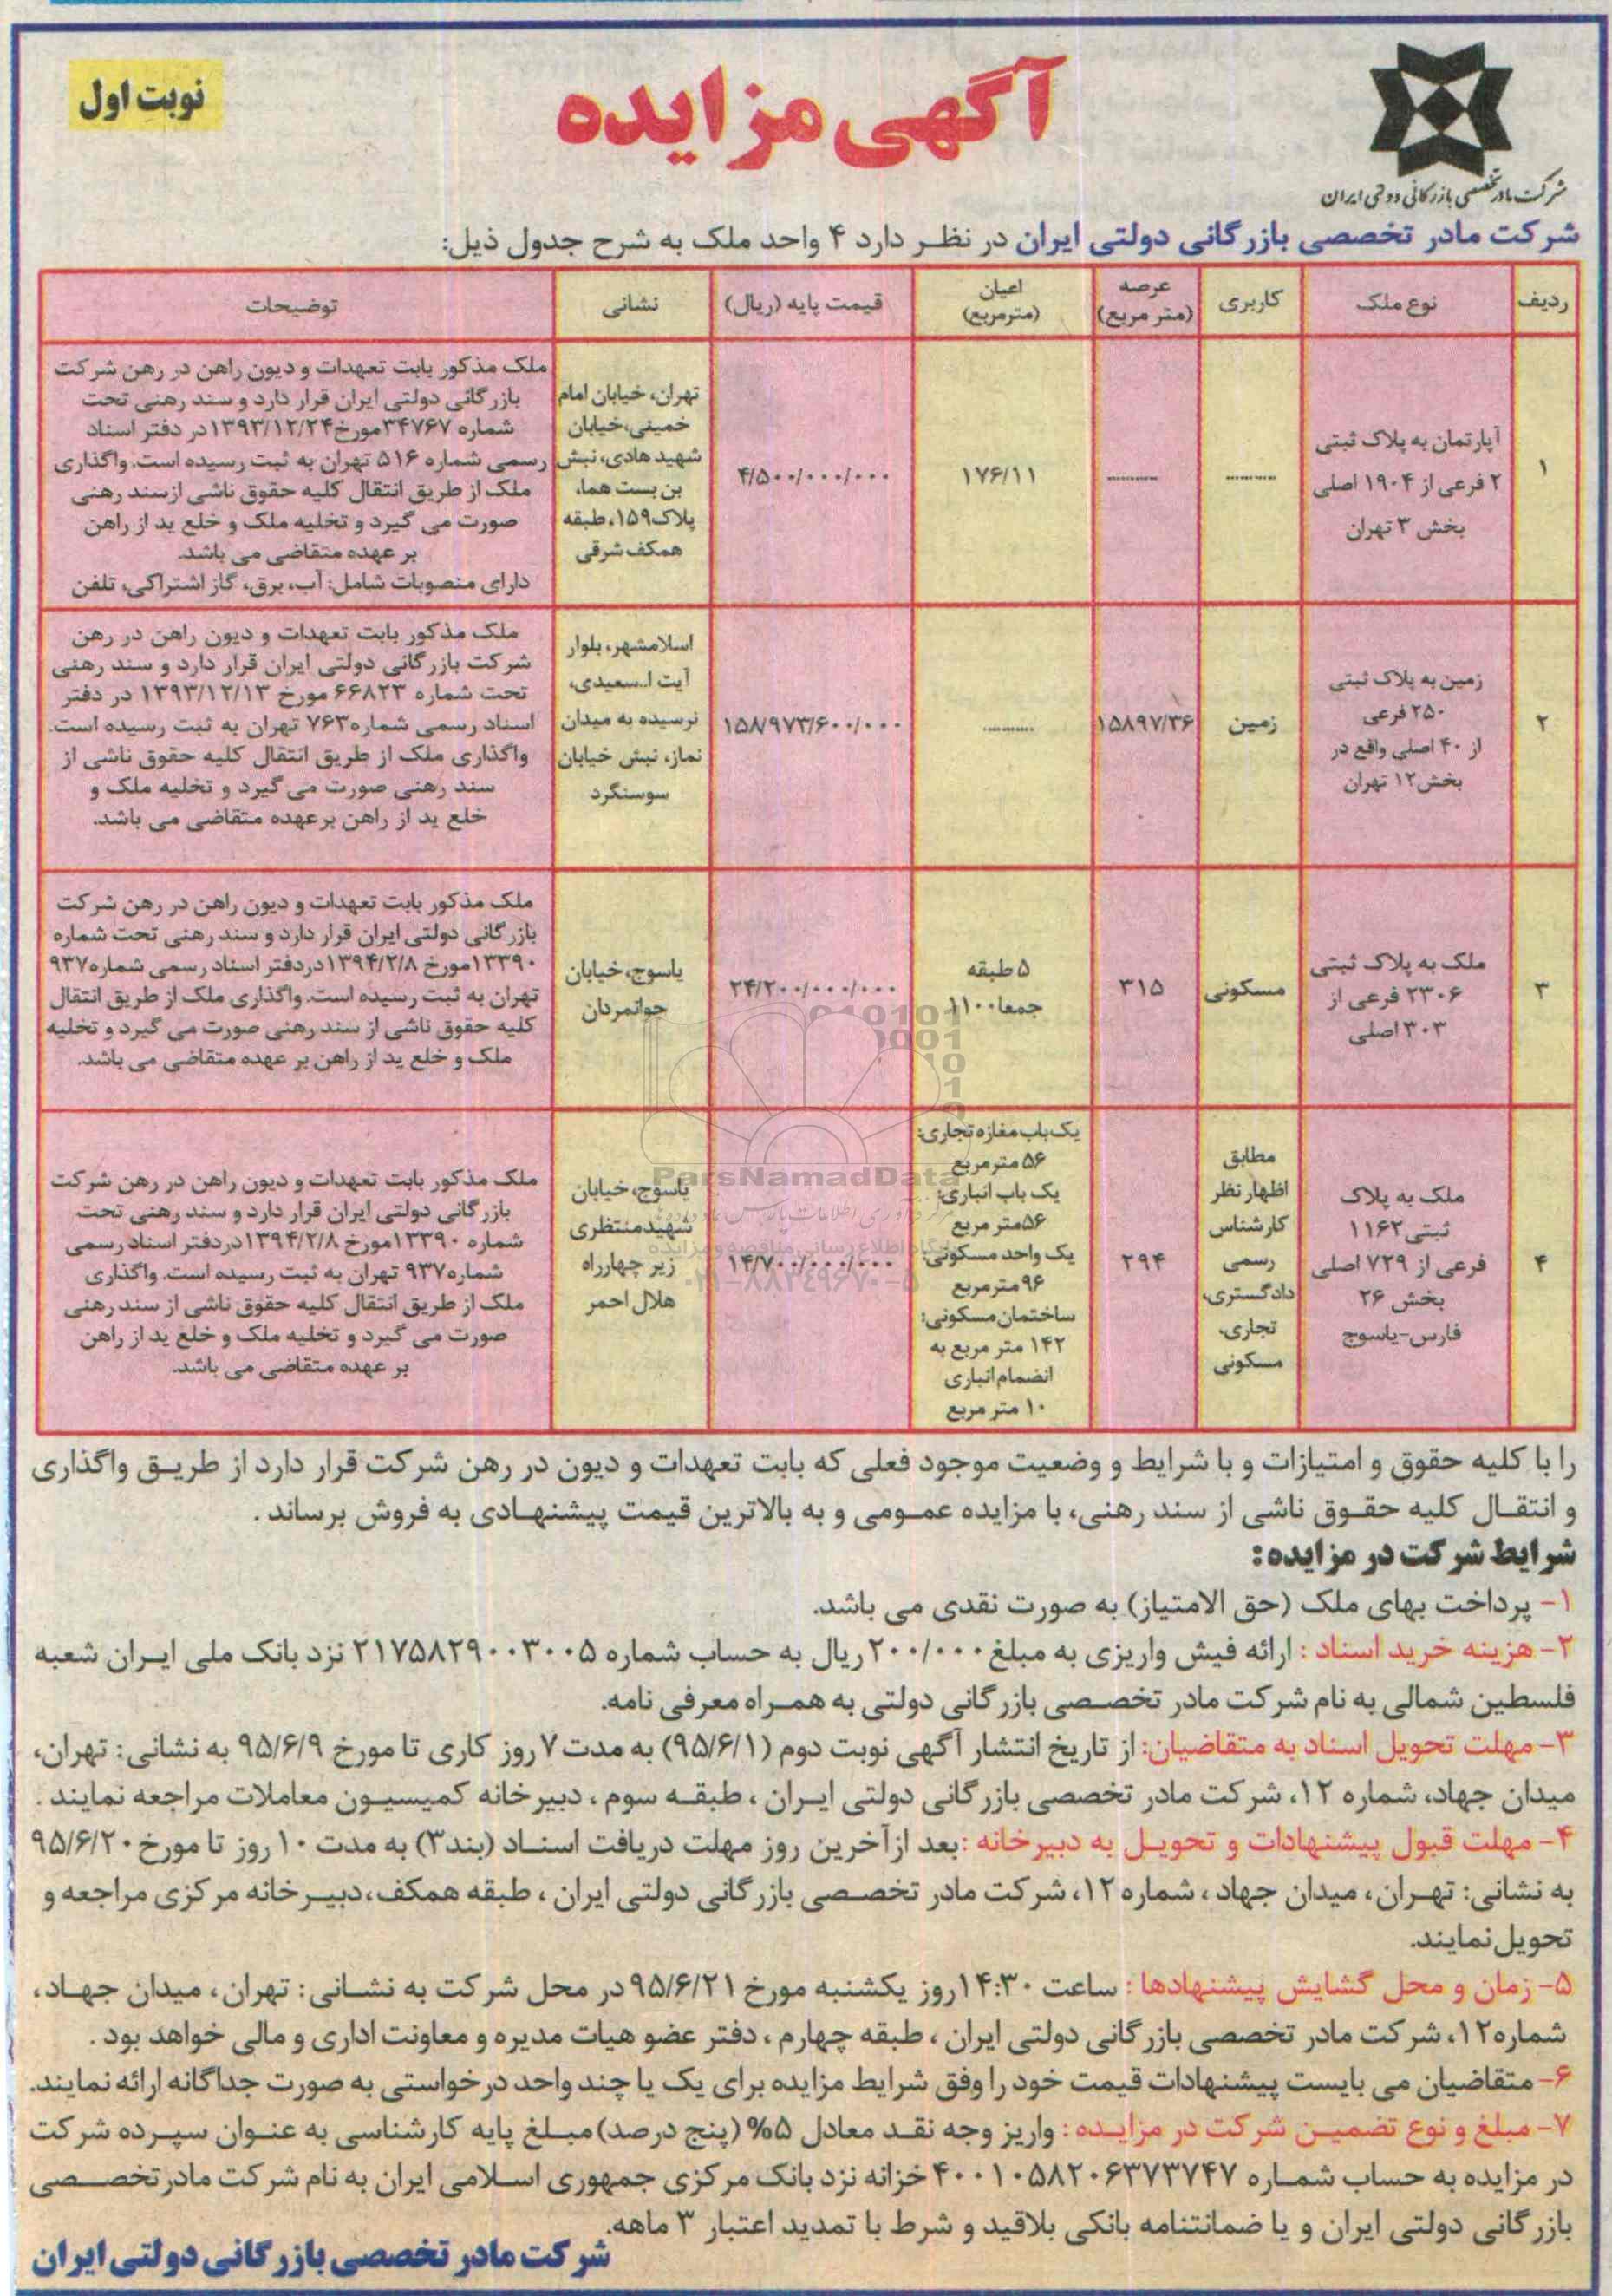 آگهی مزایده
نوبت اول
شرکت مادر تخصصی بازرگانی دولتی ایران
شرکت مادر تخصصی بازرگانی دولتی ایران در نظر دارد ۴ واحد ملک به شرح جدول ذیل:
ردیف
نوع ملک
کاربری
عرصه
(متر مربع)
اعیان
(مترمربع)
قیمت پایه (ریال)
نشانی
توضیحات
۱
آپارتمان به پلاک ثبتی
۲ فرعی از ۱۹۰۴ اصلی
بخش ۳ تهران
----------
----------
۱۷۶/۱۱
۴/۵۰۰/۰۰۰/۰۰۰
تهران، خیابان امام
خمینی،خیابان
شهید هادی، نبش
بن بست هما،
پلاک۱۵۹، طبقه
همکف شرقی
ملک مذکور بابت تعهدات و دیون راهن در رهن شرکت
بازرگانی دولتی ایران قرار دارد و سند رهنی تحت
شماره ۳۴۷۶۷مورخ۱۳۹۳/۱۲/۲۴در دفتر اسناد
رسمی شماره ۵۱۶ تهران به ثبت رسیده است. واگذاری
ملک از طریق انتقال کلیه حقوق ناشی ازسند رهنی
صورت می گیرد و تخلیه ملک و خلع ید از راهن
بر عهده متقاضی می باشد.
دارای منصوبات شامل: آب، برق، گاز اشتراکی، تلفن
۲
زمین به پلاک ثبتی
۲۵۰ فرعی
از ۴۰ اصلی واقع در
بخش۱۲ تهران
زمین
۱۵۸۹۷/۳۶
----------
۱۵۸/۹۷۳/۶۰۰/۰۰۰
اسلامشهر، بلوار
آیت ا..سعیدی،
نرسیده به میدان
نماز، نبش خیابان
سوسنگرد
ملک مذکور بابت تعهدات و دیون راهن در رهن
شرکت بازرگانی دولتی ایران قرار دارد و سند رهنی
تحت شماره ۶۶۸۲۳ مورخ ۱۳۹۳/۱۲/۱۳ در دفتر
اسناد رسمی شماره۷۶۳ تهران به ثبت رسیده است.
واگذاری ملک از طریق انتقال کلیه حقوق ناشی از
سند رهنی صورت می گیرد و تخلیه ملک و
خلع ید از راهن برعهده متقاضی می باشد.
۳
ملک به پلاک ثبتی
۲۳۰۶ فرعی از
۳۰۳ اصلی
مسکونی
۳۱۵
۵ طبقه
جمعا۱۱۰۰
۲۴/۲۰۰/۰۰۰/۰۰۰
یاسوج، خیابان
جوانمردان
ملک مذکور بابت تعهدات و دیون راهن در رهن شرکت
بازرگانی دولتی ایران قرار دارد و سند رهنی تحت شماره
۱۳۳۹۰مورخ ۱۳۹۴/۲/۸دردفتر اسناد رسمی شماره۹۳۷
تهران به ثبت رسیده است. واگذاری ملک از طریق انتقال
کلیه حقوق ناشی از سند رهنی صورت می گیرد و تخلیه
ملک و خلع ید از راهن بر عهده متقاضی می باشد.
۴
ملک به پلاک
ثبتی۱۱۶۲
فرعی از ۷۲۹ اصلی
بخش ۲۶
فارس-یاسوج
مطابق
اظهار نظر
کارشناس
رسمی
دادگستری،
تجاری،
مسکونی
۲۹۴
یک باب مغازه تجاری:
۵۶ مترمربع
یک باب انباری:
۵۶متر مربع
یک واحد مسکونی:
۹۶مترمربع
ساختمان مسکونی:
۱۴۲ متر مربع به
انضمام انباری
۱۰ متر مربع
۱۴/۷۰۰/۰۰۰/۰۰۰
یاسوج، خیابان
شهیدمنتظری
زیر چهارراه
هلال احمر
ملک مذکور بابت تعهدات و دیون راهن در رهن شرکت
بازرگانی دولتی ایران قرار دارد و سند رهنی تحت
شماره ۱۳۳۹۰مورخ ۱۳۹۴/۲/۸دردفتر اسناد رسمی
شماره۹۳۷ تهران به ثبت رسیده است. واگذاری
ملک از طریق انتقال کلیه حقوق ناشی از سند رهنی
صورت می گیرد و تخلیه ملک و خلع ید از راهن
بر عهده متقاضی می باشد.
ParsNamadData
۰۲۱-۸۸۳۴۹۶۷۰-۵
را با کلیه حقوق و امتیازات و با شرایط و وضعیت موجود فعلی که بابت تعهدات و دیون در رهن شرکت قرار دارد از طریق واگذاری
و انتقال کلیه حقوق ناشی از سند رهنی، با مزایده عمومی و به بالاترین قیمت پیشنهادی به فروش برساند .
شرایط شرکت در مزایده:
۱- پرداخت بهای ملک (حق الامتیاز) به صورت نقدی می باشد.
۲- هزینه خرید اسناد : ارائه فیش واریزی به مبلغ ۲۰۰/۰۰۰ ریال به حساب شماره ۲۱۷۵۸۲۹۰۰۳۰۰۵ نزد بانک ملی ایران شعبه
فلسطین شمالی به نام شرکت مادر تخصصی بازرگانی دولتی به همراه معرفی نامه.
۳- مهلت تحویل اسناد به متقاضیان: از تاریخ انتشار آگهی نوبت دوم (۹۵/۶/۱) به مدت ۷ روز کاری تا مورخ ۹۵/۶/۹ به نشانی: تهران،
میدان جهاد، شماره ۱۲، شرکت مادر تخصصی بازرگانی دولتی ایران ، طبقه سوم ، دبیرخانه کمیسیون معاملات مراجعه نمایند .
۴- مهلت قبول پیشنهادات و تحویل به دبیرخانه :بعد ازآخرین روز مهلت دریافت اسناد (بند۳) به مدت ۱۰ روز تا مورخ ۹۵/۶/۲۰
به نشانی: تهران، میدان جهاد ، شماره ۱۲، شرکت مادر تخصصی بازرگانی دولتی ایران ، طبقه همکف،دبیرخانه مرکزی مراجعه و
تحویل نمایند.
۵- زمان و محل گشایش پیشنهادها : ساعت ۱۴:۳۰روز یکشنبه مورخ ۹۵/۶/۲۱در محل شرکت به نشانی: تهران، میدان جهاد،
شماره۱۲، شرکت مادر تخصصی بازرگانی دولتی ایران ، طبقه چهارم ، دفتر عضو هیات مدیره و معاونت اداری و مالی خواهد بود .
۶- متقاضیان می بایست پیشنهادات قیمت خود را وفق شرایط مزایده برای یک یا چند واحد درخواستی به صورت جداگانه ارائه نمایند.
۷- مبلغ و نوع تضمین شرکت در مزایده : واریز وجه نقد معادل ۵% (پنج درصد) مبلغ پایه کارشناسی به عنوان سپرده شرکت
در مزایده به حساب شماره ۴۰۰۱۰۵۸۲۰۶۳۷۳۷۴۷ خزانه نزد بانک مرکزی جمهوری اسلامی ایران به نام شرکت مادرتخصصی
بازرگانی دولتی ایران و یا ضمانتنامه بانکی بلاقید و شرط با تمدید اعتبار ۳ ماهه.
شرکت مادر تخصصی بازرگانی دولتی ایران